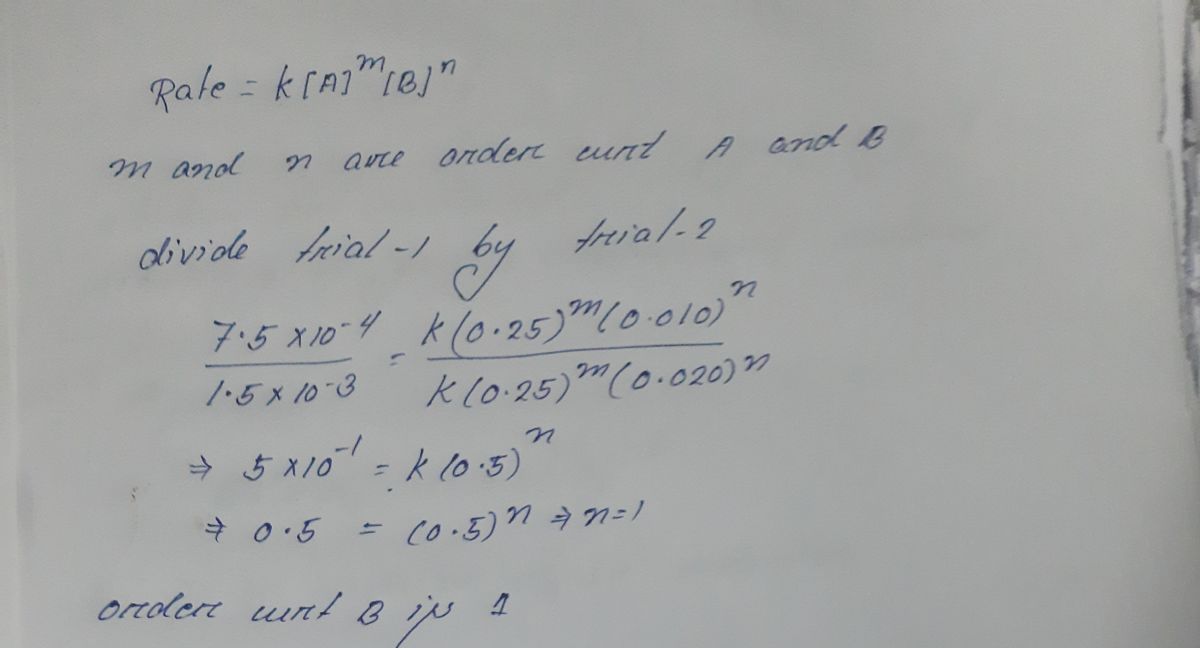 Rate = k[A]^m[B]^n
m and n are order wrt A and B
divide trial-1 by trial-2
7.5 × 10^-4 / 1.5 × 10^-3 = k(0.25)^m(0.010)^n / k(0.25)^m(0.020)^n
⇒ 5 × 10^-1 = k(0.5)^n
⇒ 0.5 = (0.5)^n ⇒ n=1
order wrt B is 1